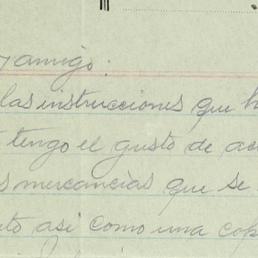 y amigo:
las instrucciones que h
tengo el gusto de ac
s mercancías que se
to asi como una cop